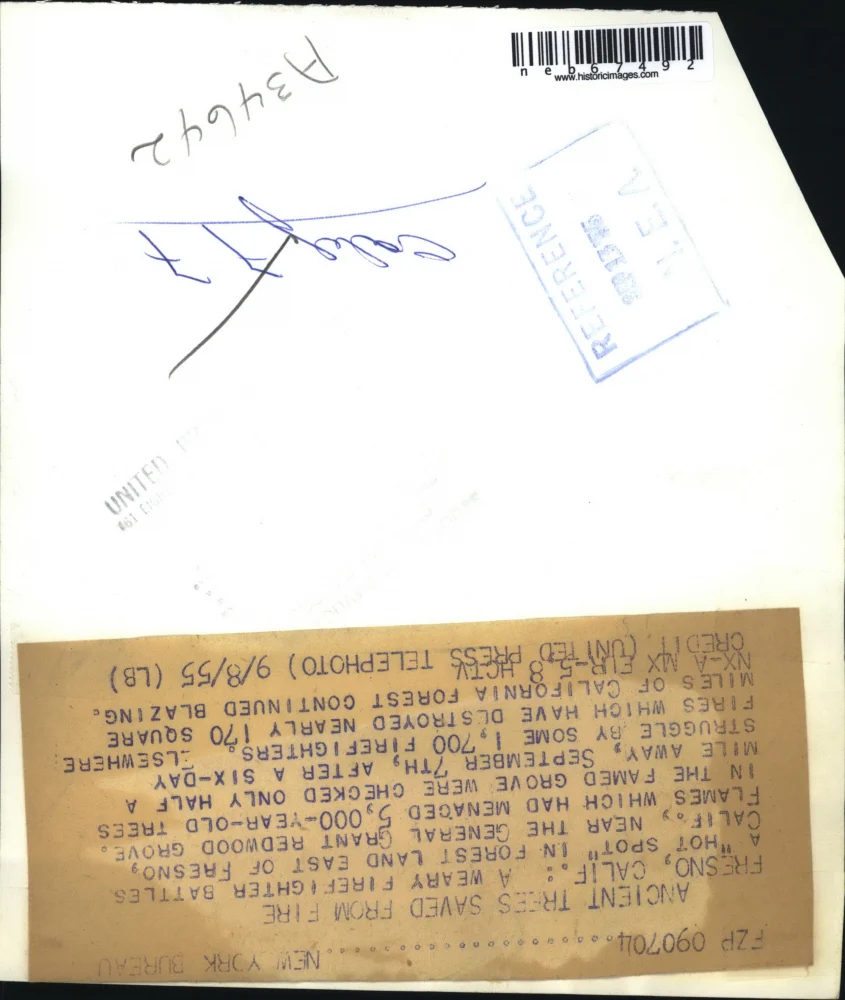 neb67492
www.historicimages.com
A34642
Calif
77
REFERENCE
N.E.A.
UNITED
FZP 090704.........................NEW YORK BUREAU
ANCIENT TREES SAVED FROM FIRE
FRESNO, CALIF.: A WEARY FIREFIGHTER BATTLES
A "HOT SPOT" IN FOREST LAND EAST OF FRESNO,
CALIF., NEAR THE GENERAL GRANT REDWOOD GROVE.
FLAMES WHICH HAD MENACED 5,000-YEAR-OLD TREES
IN THE FAMED GROVE WERE CHECKED ONLY HALF A
MILE AWAY, SEPTEMBER 7TH, AFTER A SIX-DAY
STRUGGLE BY SOME 1,700 FIREFIGHTERS. ELSEWHERE
FIRES WHICH HAVE DESTROYED NEARLY 170 SQUARE
MILES OF CALIFORNIA FOREST CONTINUED BLAZING.
NX-A MX EUR-5,8 HCTV
CREDIT (UNITED PRESS TELEPHOTO) 9/8/55 (LB)